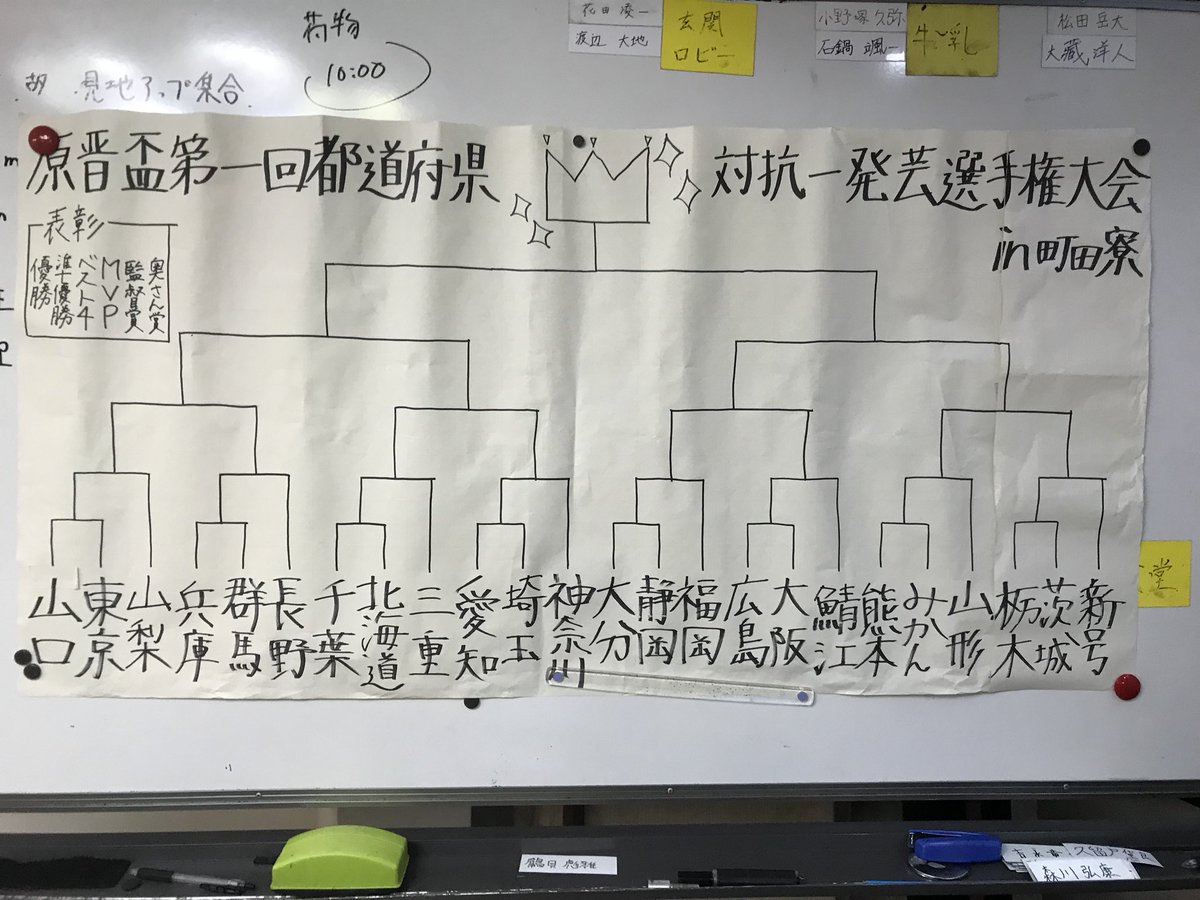 荷物
10:00
集合
渡辺 大地
玄関
ロビー
小野塚久弥
石鍋 颯一
牛乳
松田 岳大
大蔵 洋人
原晋盃第一回都道府県 対抗一発芸選手権大会
in町田寮
表彰
優勝
準優勝
ベスト4
MVP
監督賞
奥さん賞
山口
東京
山梨
兵庫
群馬
長野
千葉
北海道
三重
愛知
埼玉
神奈川
大分
静岡
福岡
広島
大阪
鯖江
熊本
みかん
山形
栃木
茨城
新号
堂
森川弘康